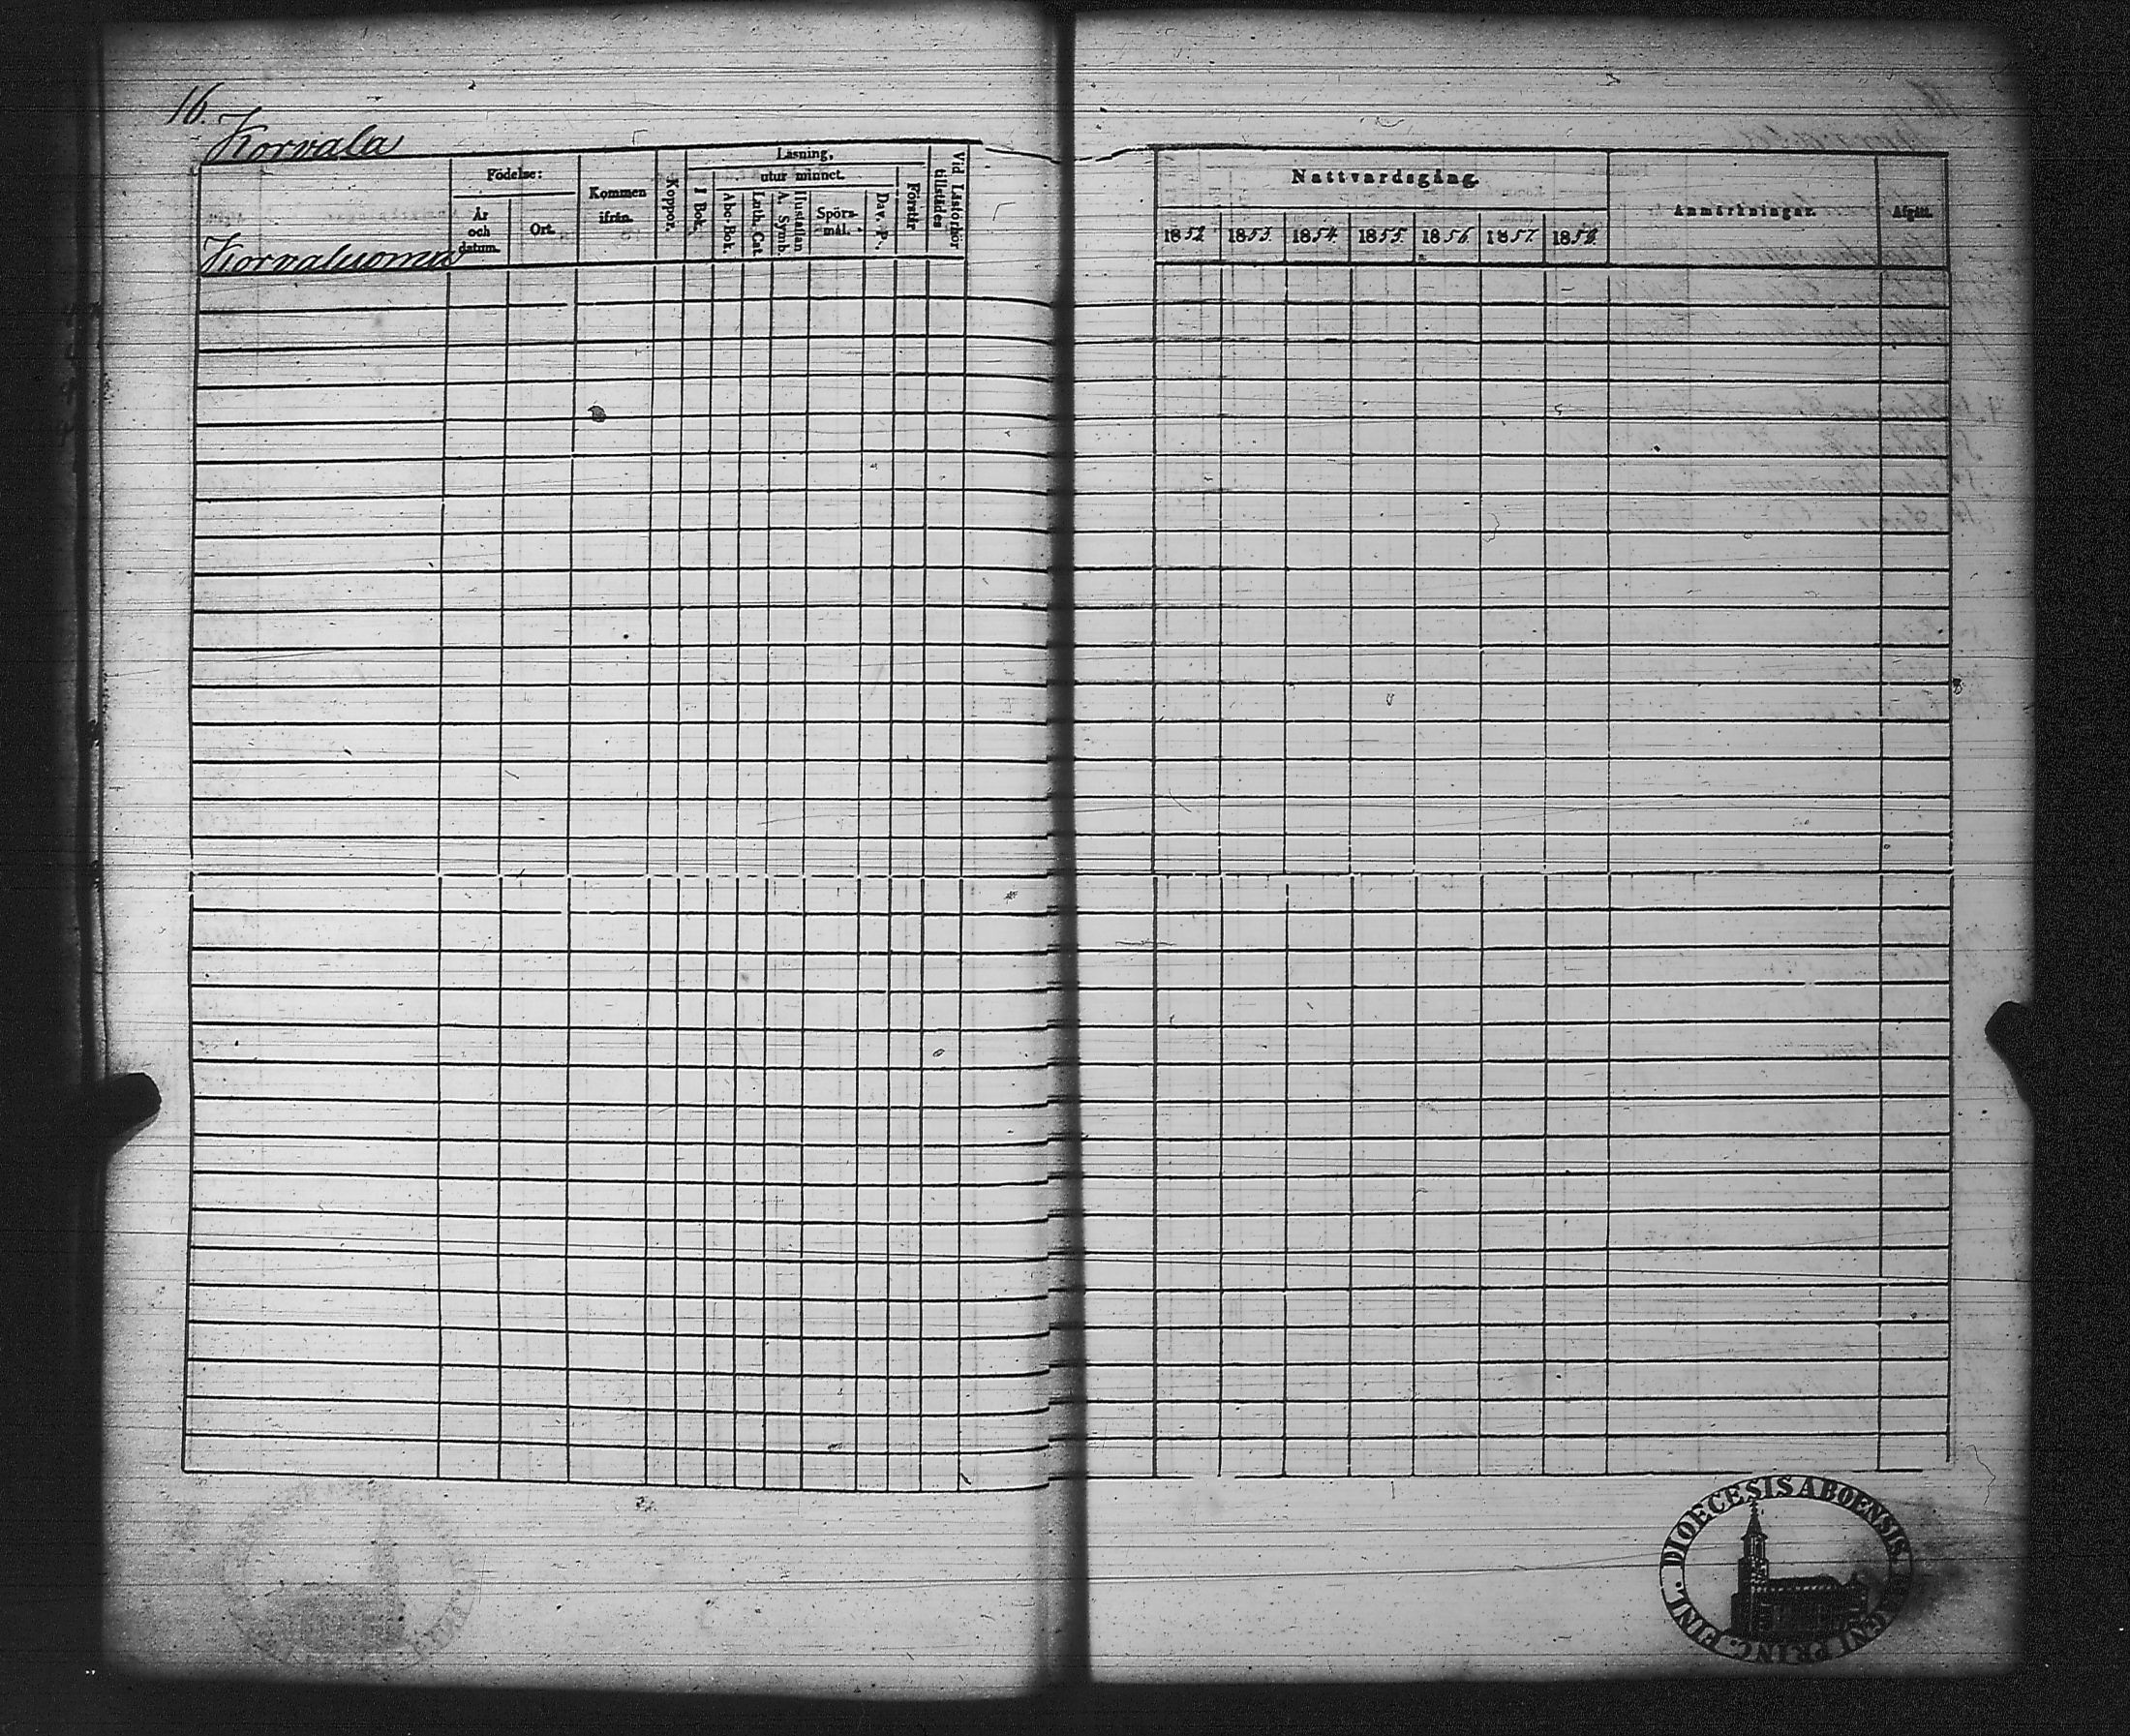 16.
Korvala
Födelse:
År
och
datum.
Ort.
Kommen
ifrån.
Koppor.
Läsning,
utur minnet.
I Bok.
Abc-Bok.
Luth. Cat.
A. Symb.
Hustaflan
Spörs-
mål.
Dav. P.
Förstår
Vid Läsförhör
tillstädes
Korvaluoma
Nattvardsgång.
1852
1853.
1854.
1855.
1856.
1857.
1858.
Anmärkningar.
Afgått.
DIOECESIS ABOENSIS. MAGNI PRINC. FINL.